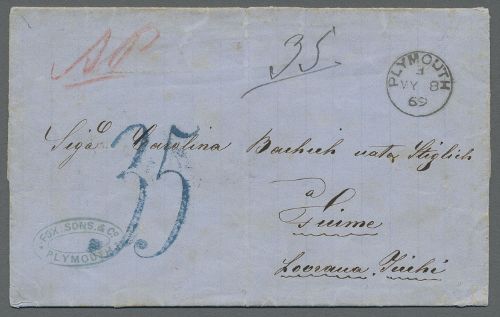 AP
35.
PLYMOUTH
MY 8
69
Sig.a Carolina Bachich nata Stiglich
35
a
Fiume
FOX, SONS, & Co
PLYMOUTH